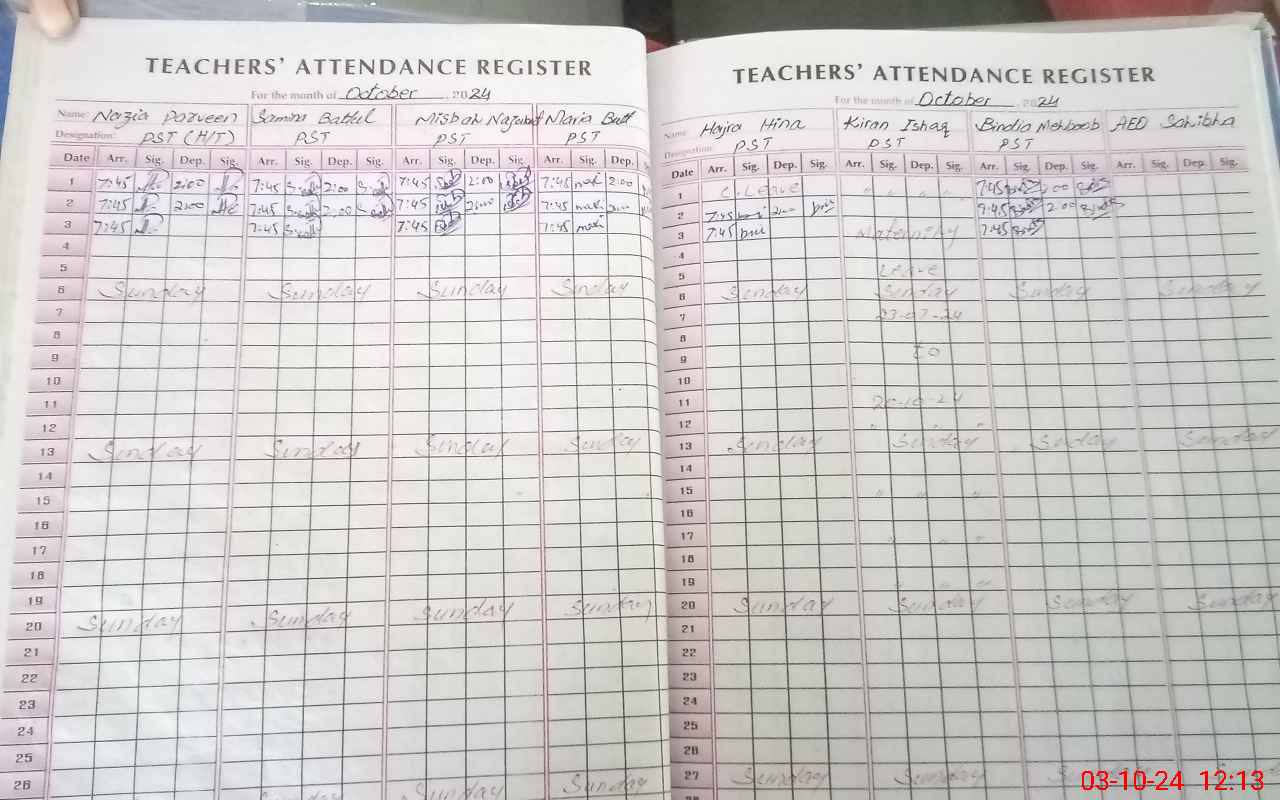 TEACHERS' ATTENDANCE REGISTER
For the month of October, 2024
Name Nazia Parveen Samina Battul Misbah Najabat Maria Butt
Designation: PST (H/T) PST PST PST
Date Arr. Sig. Dep. Sig. Arr. Sig. Dep. Sig. Arr. Sig. Dep. Sig. Arr. Sig. Dep.
1 7:45 2:00 7:45 2:00 7:45 2:00 7:45 2:00
2 7:45 2:00 7:45 2:00 7:45 2:00 7:45
3 7:45 7:45 7:45 7:45
4
5
6 Sunday Sunday Sunday Sunday
7
8
9
10
11
12
13 Sunday Sunday Sunday Sunday
14
15
16
17
18
19
20 Sunday Sunday Sunday Sunday
21
22
23
24
25
26 Sunday Sunday Sunday
TEACHERS' ATTENDANCE REGISTER
For the month of October, 2024
Name: Hajra Hina Kiran Ishaq Bindia Mehboob AEO Sahibha
Designation: PST PST PST
Date Arr. Sig. Dep. Sig. Arr. Sig. Dep. Sig. Arr. Sig. Dep. Sig. Arr. Sig. Dep. Sig.
1 C.Leave " " " " 7:45 2:00
2 7:45 2:00 7:45 2:00
3 7:45 Maternity 7:45
4
5 Leave
6 Sunday Sunday Sunday Sunday
7 23-07-24
8
9 to
10
11 20-10-24
12 " " "
13 Sunday Sunday Sunday Sunday
14
15 " " "
16
17 " " "
18
19 " " "
20 Sunday Sunday Sunday Sunday
21
22
23
24
25
26
27 Sunday Sunday Sunday
03-10-24 12:13